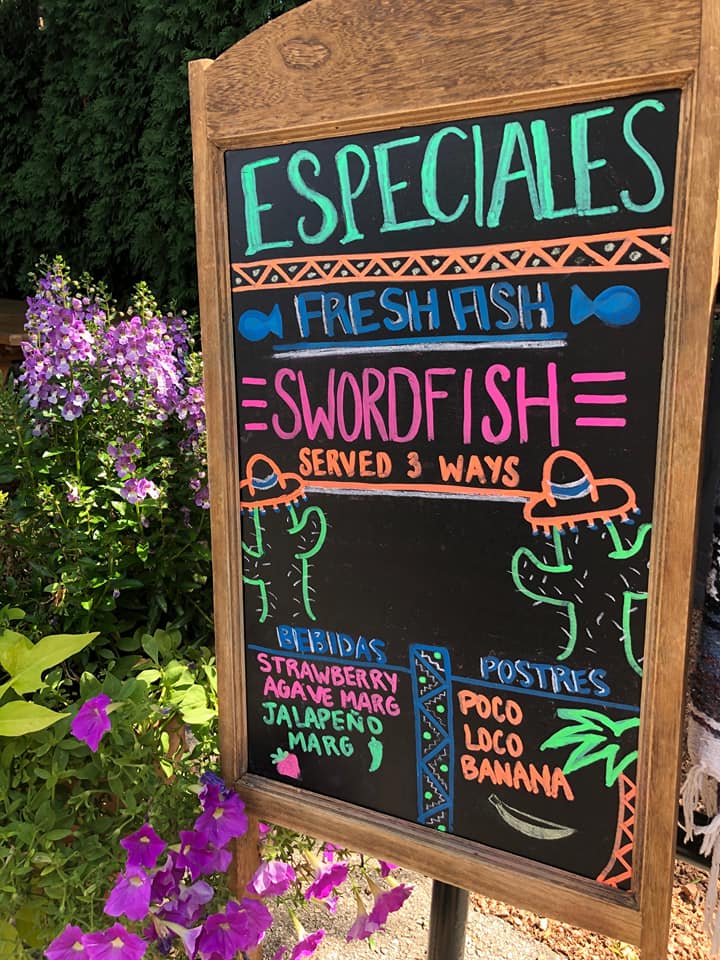 ESPECIALES
FRESH FISH
SWORDFISH
SERVED 3 WAYS
BEBIDAS
STRAWBERRY
AGAVE MARG
JALAPEÑO
MARG
POSTRES
POCO
LOCO
BANANA